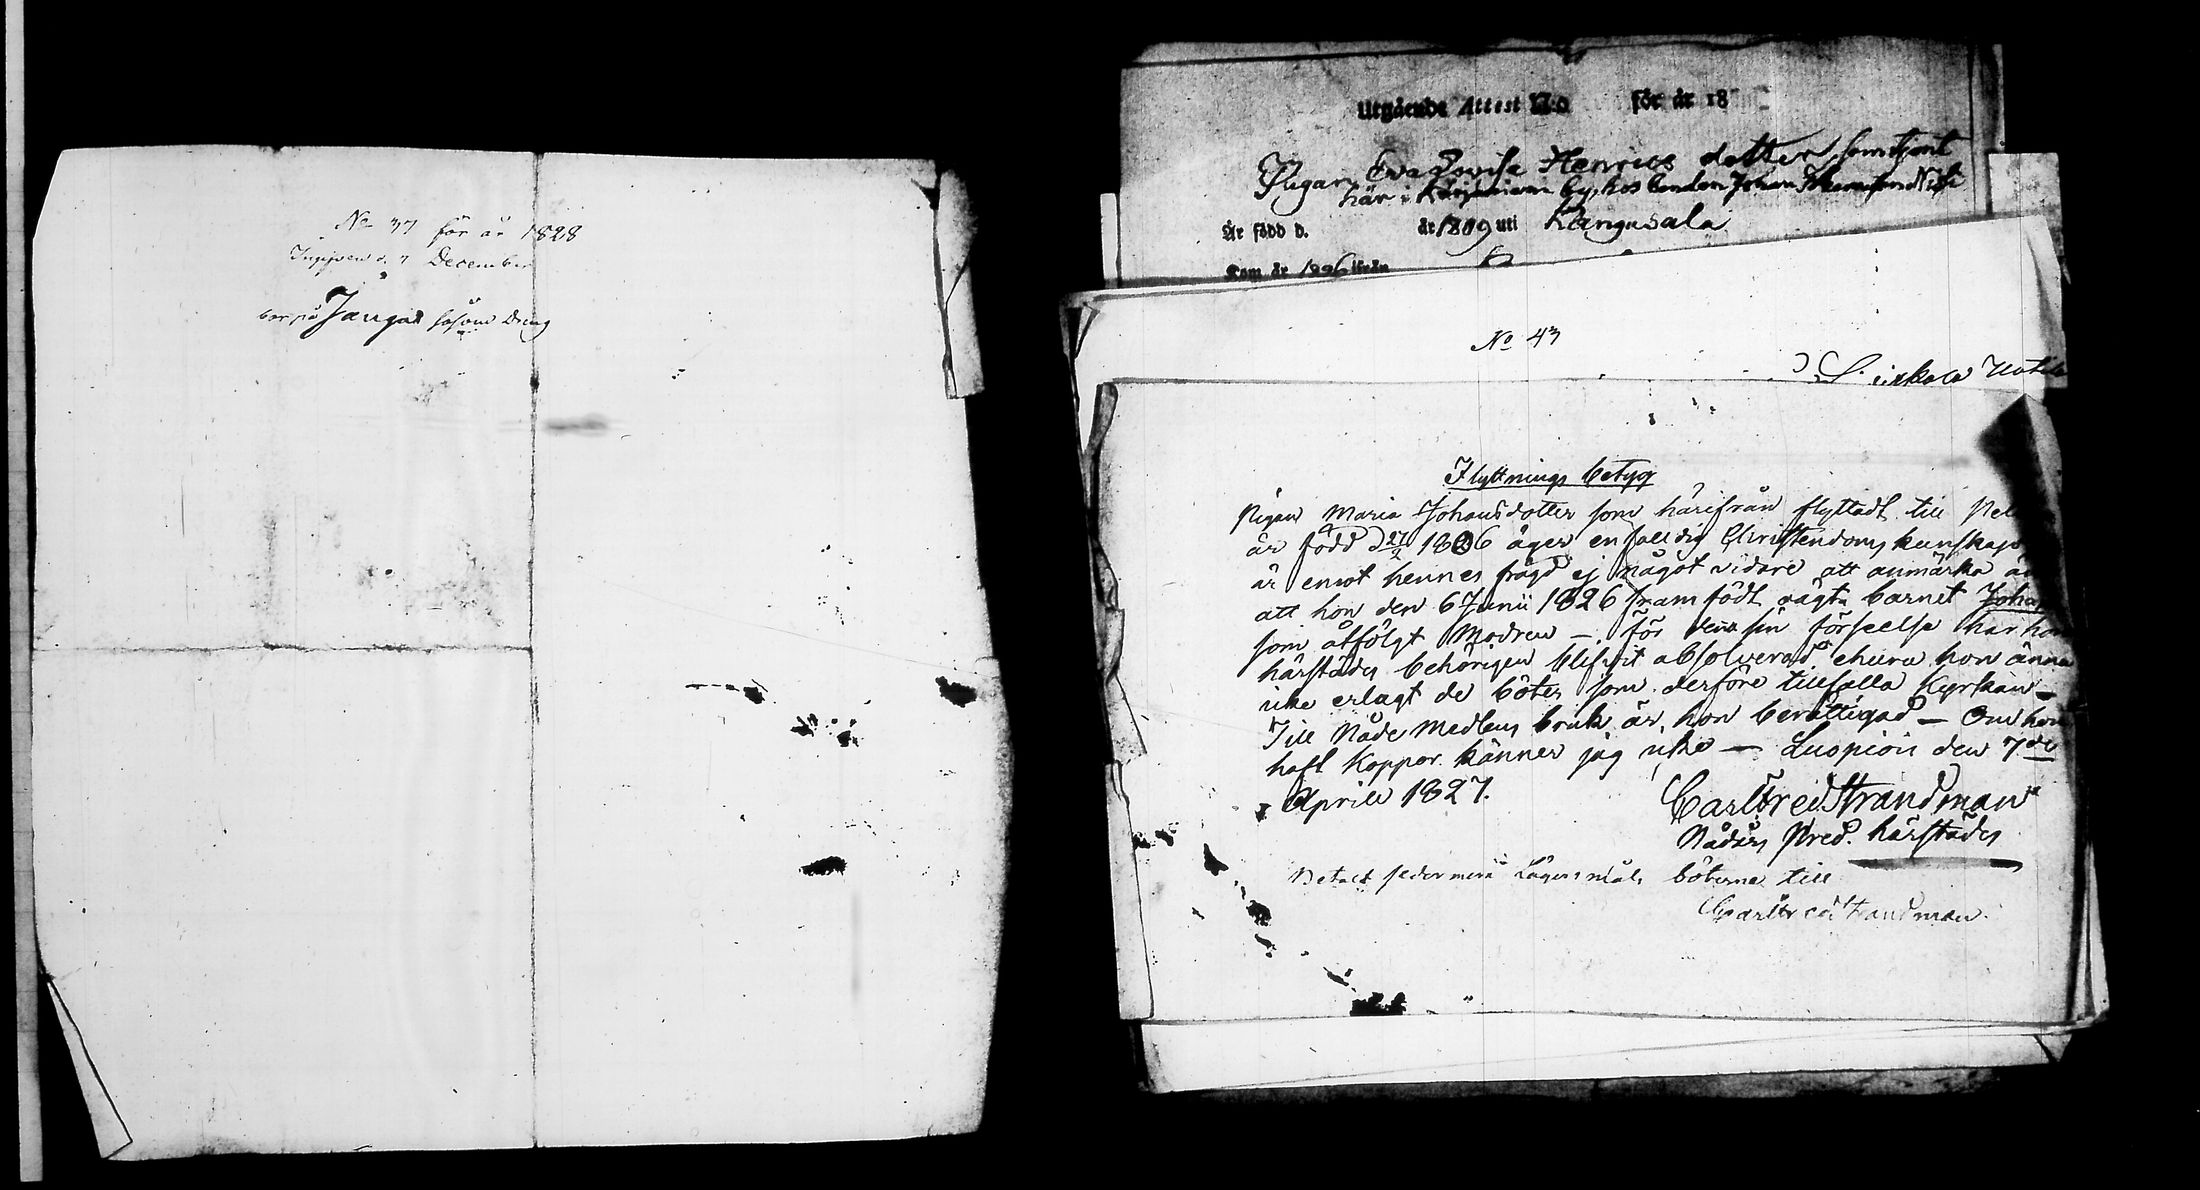 No 37 för år 1828
Ingifven d. 7 December
bor på Janga såsom Dräng
Utgående Attest N:o för år 18
Pigan Eva Lovisa Henrics dotter som tjent
här i by, hos bonden Johan
Är född d. år 1809 uti Kangasala
Kom år 1826 ifrån
No 43
Flyttnings betyg
Pigan Maria Johansdotter som härifrån flyttadt till
är född d 27/2 1806 äger enfalldig Christendoms kunskap
är emot hennes frägd ej något vidare att anmärka än
att hon den 6 Junii 1826 framfödt oägta barnet Joha
som åtfölgt Modren — för denna sin förseelse har hon
härstädes behörigen blifvit absolverad ehuru hon ännu
icke erlagt de böter som derföre tillfalla Kyrkan —
Till Nåde Medlens bruk är hon berättigad — Om hon
haft koppor känner jag icke — Luopiois den 7de
Aprill 1827.
Carl Fred Strandman
Nådårs Pred. härstädes
Betalt sedermera Lägersmåls böterne till
Carl Fred Strandman.